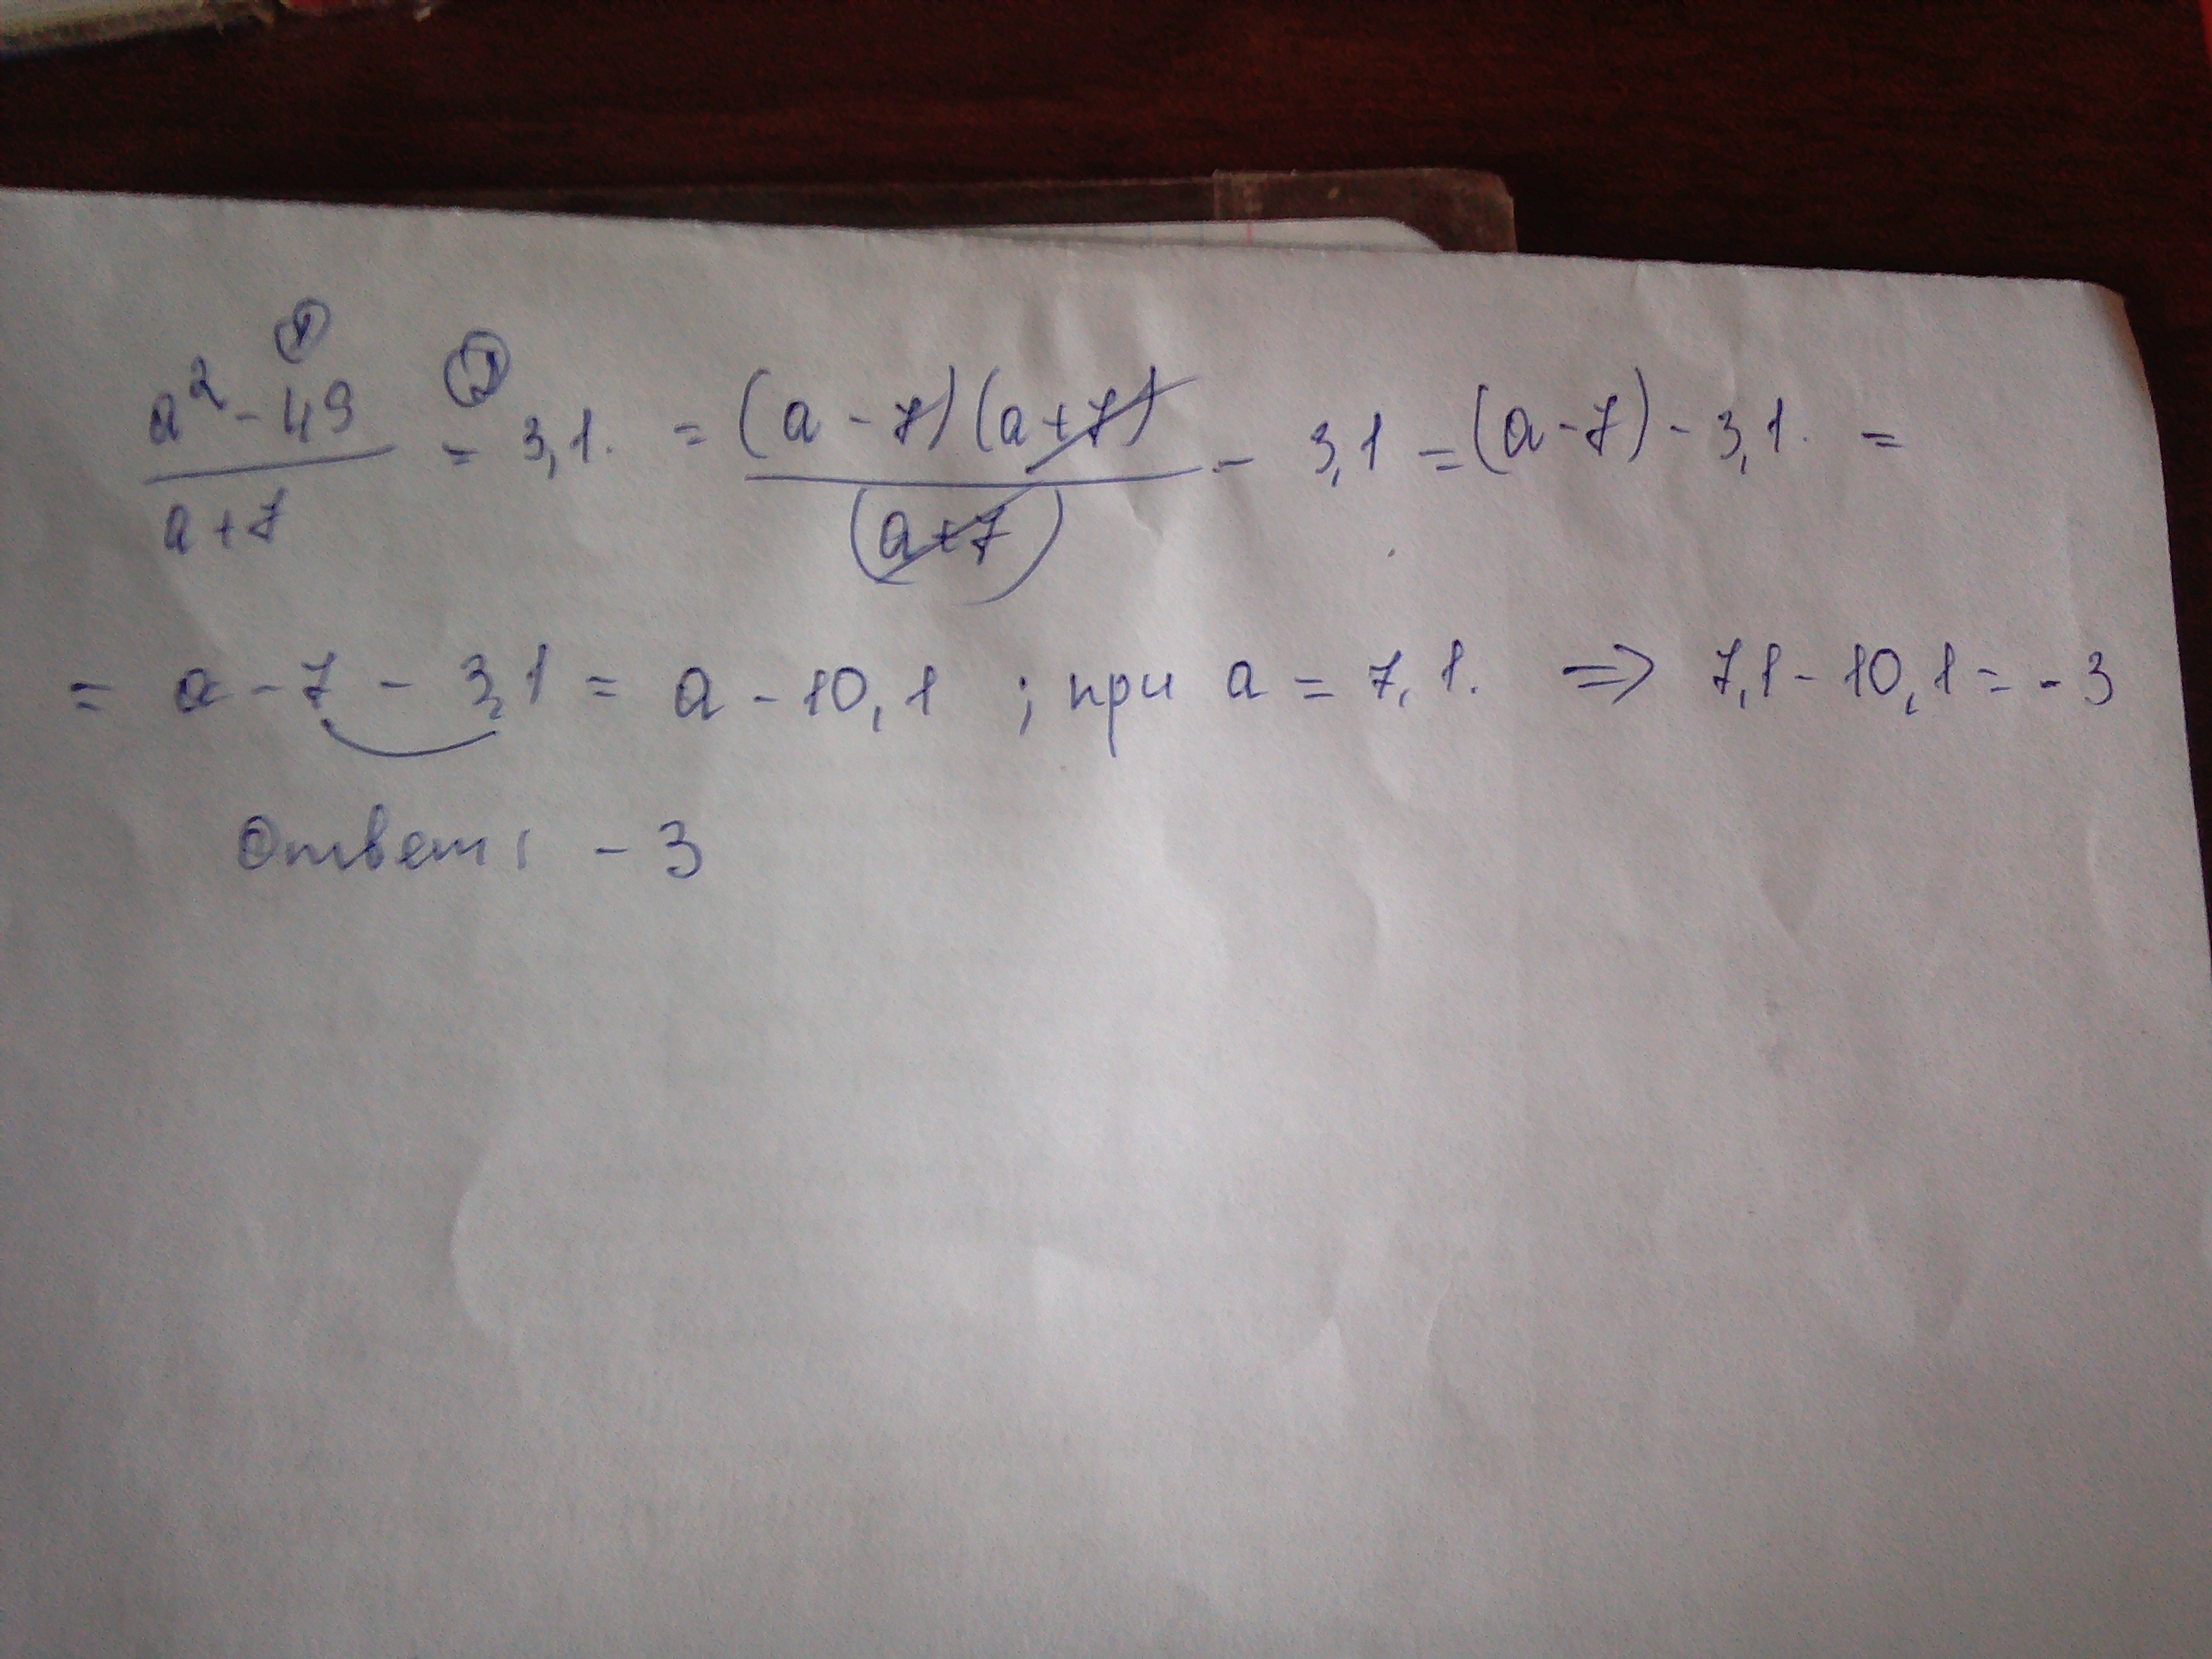 ① ②
a² - 49 / a + 7 = 3,1. = (a - 7)(a + 7) / (a + 7) - 3,1 = (a - 7) - 3,1. =
= a - 7 - 3,1 = a - 10,1 ; при a = 7,1. ⇒ 7,1 - 10,1 = - 3
Ответ: - 3